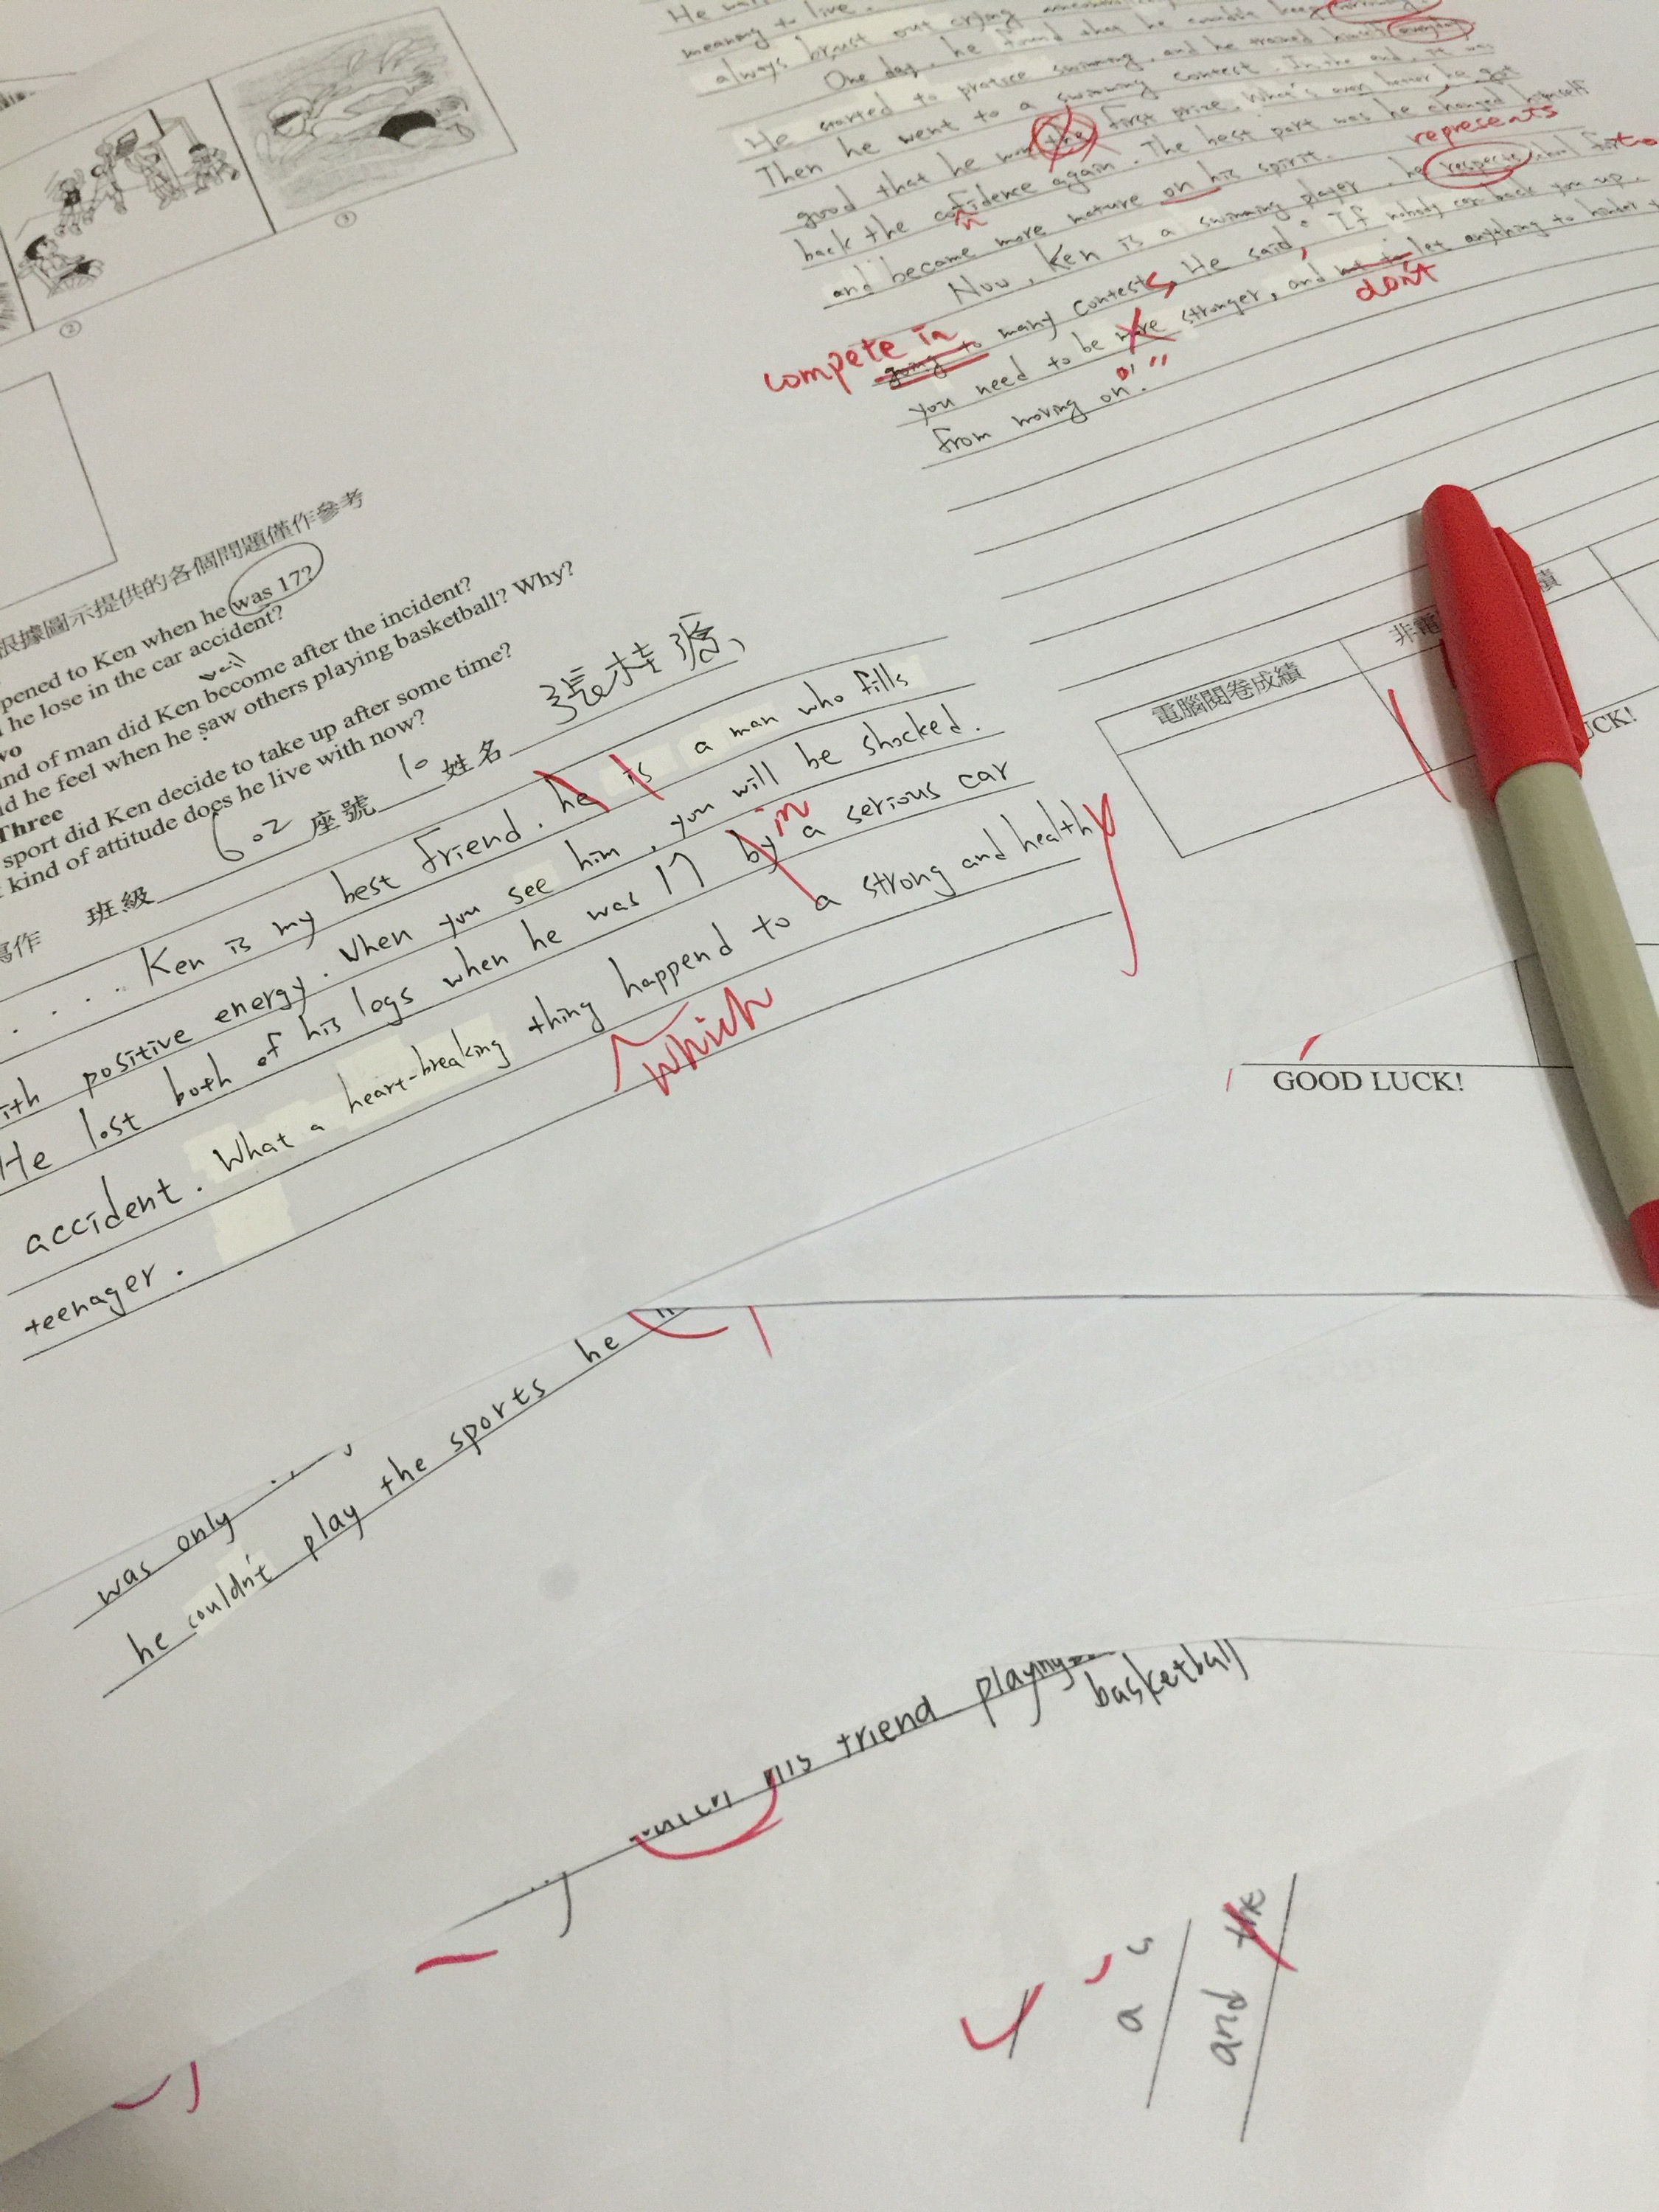 always brust out crying
One day, he found that he couldn't keep
He started to pratice swimming, and he trained himself everyday.
Then he went to a swimming contest. In the end, it was
good that he won the first prize. What's even better, he got
back the cofidence again. The best part was he changed himself
n
and became more mature on his spirit.
represents
Now, Ken is a swimming player, he respects
to
going to many contests. He said, "If nobody can back you up,
compete in
you need to be more stronger, and let anything to hinder
don't
from moving on."
②
③
根據圖示提供的各個問題僅作參考
pened to Ken when he was 17?
he lose in the car accident?
wo
nd of man did Ken become after the incident?
d he feel when he saw others playing basketball? Why?
Three
sport did Ken decide to take up after some time?
kind of attitude does he live with now?
寫作 班級 602 座號 10 姓名
Ken is my best friend, he is a man who fills
ith positive energy. When you see him, you will be shocked.
He lost both of his legs when he was 17 by a serious car
in
accident. What a heart-breaking thing happend to a strong and healthy
which
teenager.
電腦閱卷成績
非電
績
UCK!
GOOD LUCK!
was only
he couldn't play the sports he
his friend playing
basketball
a
and the